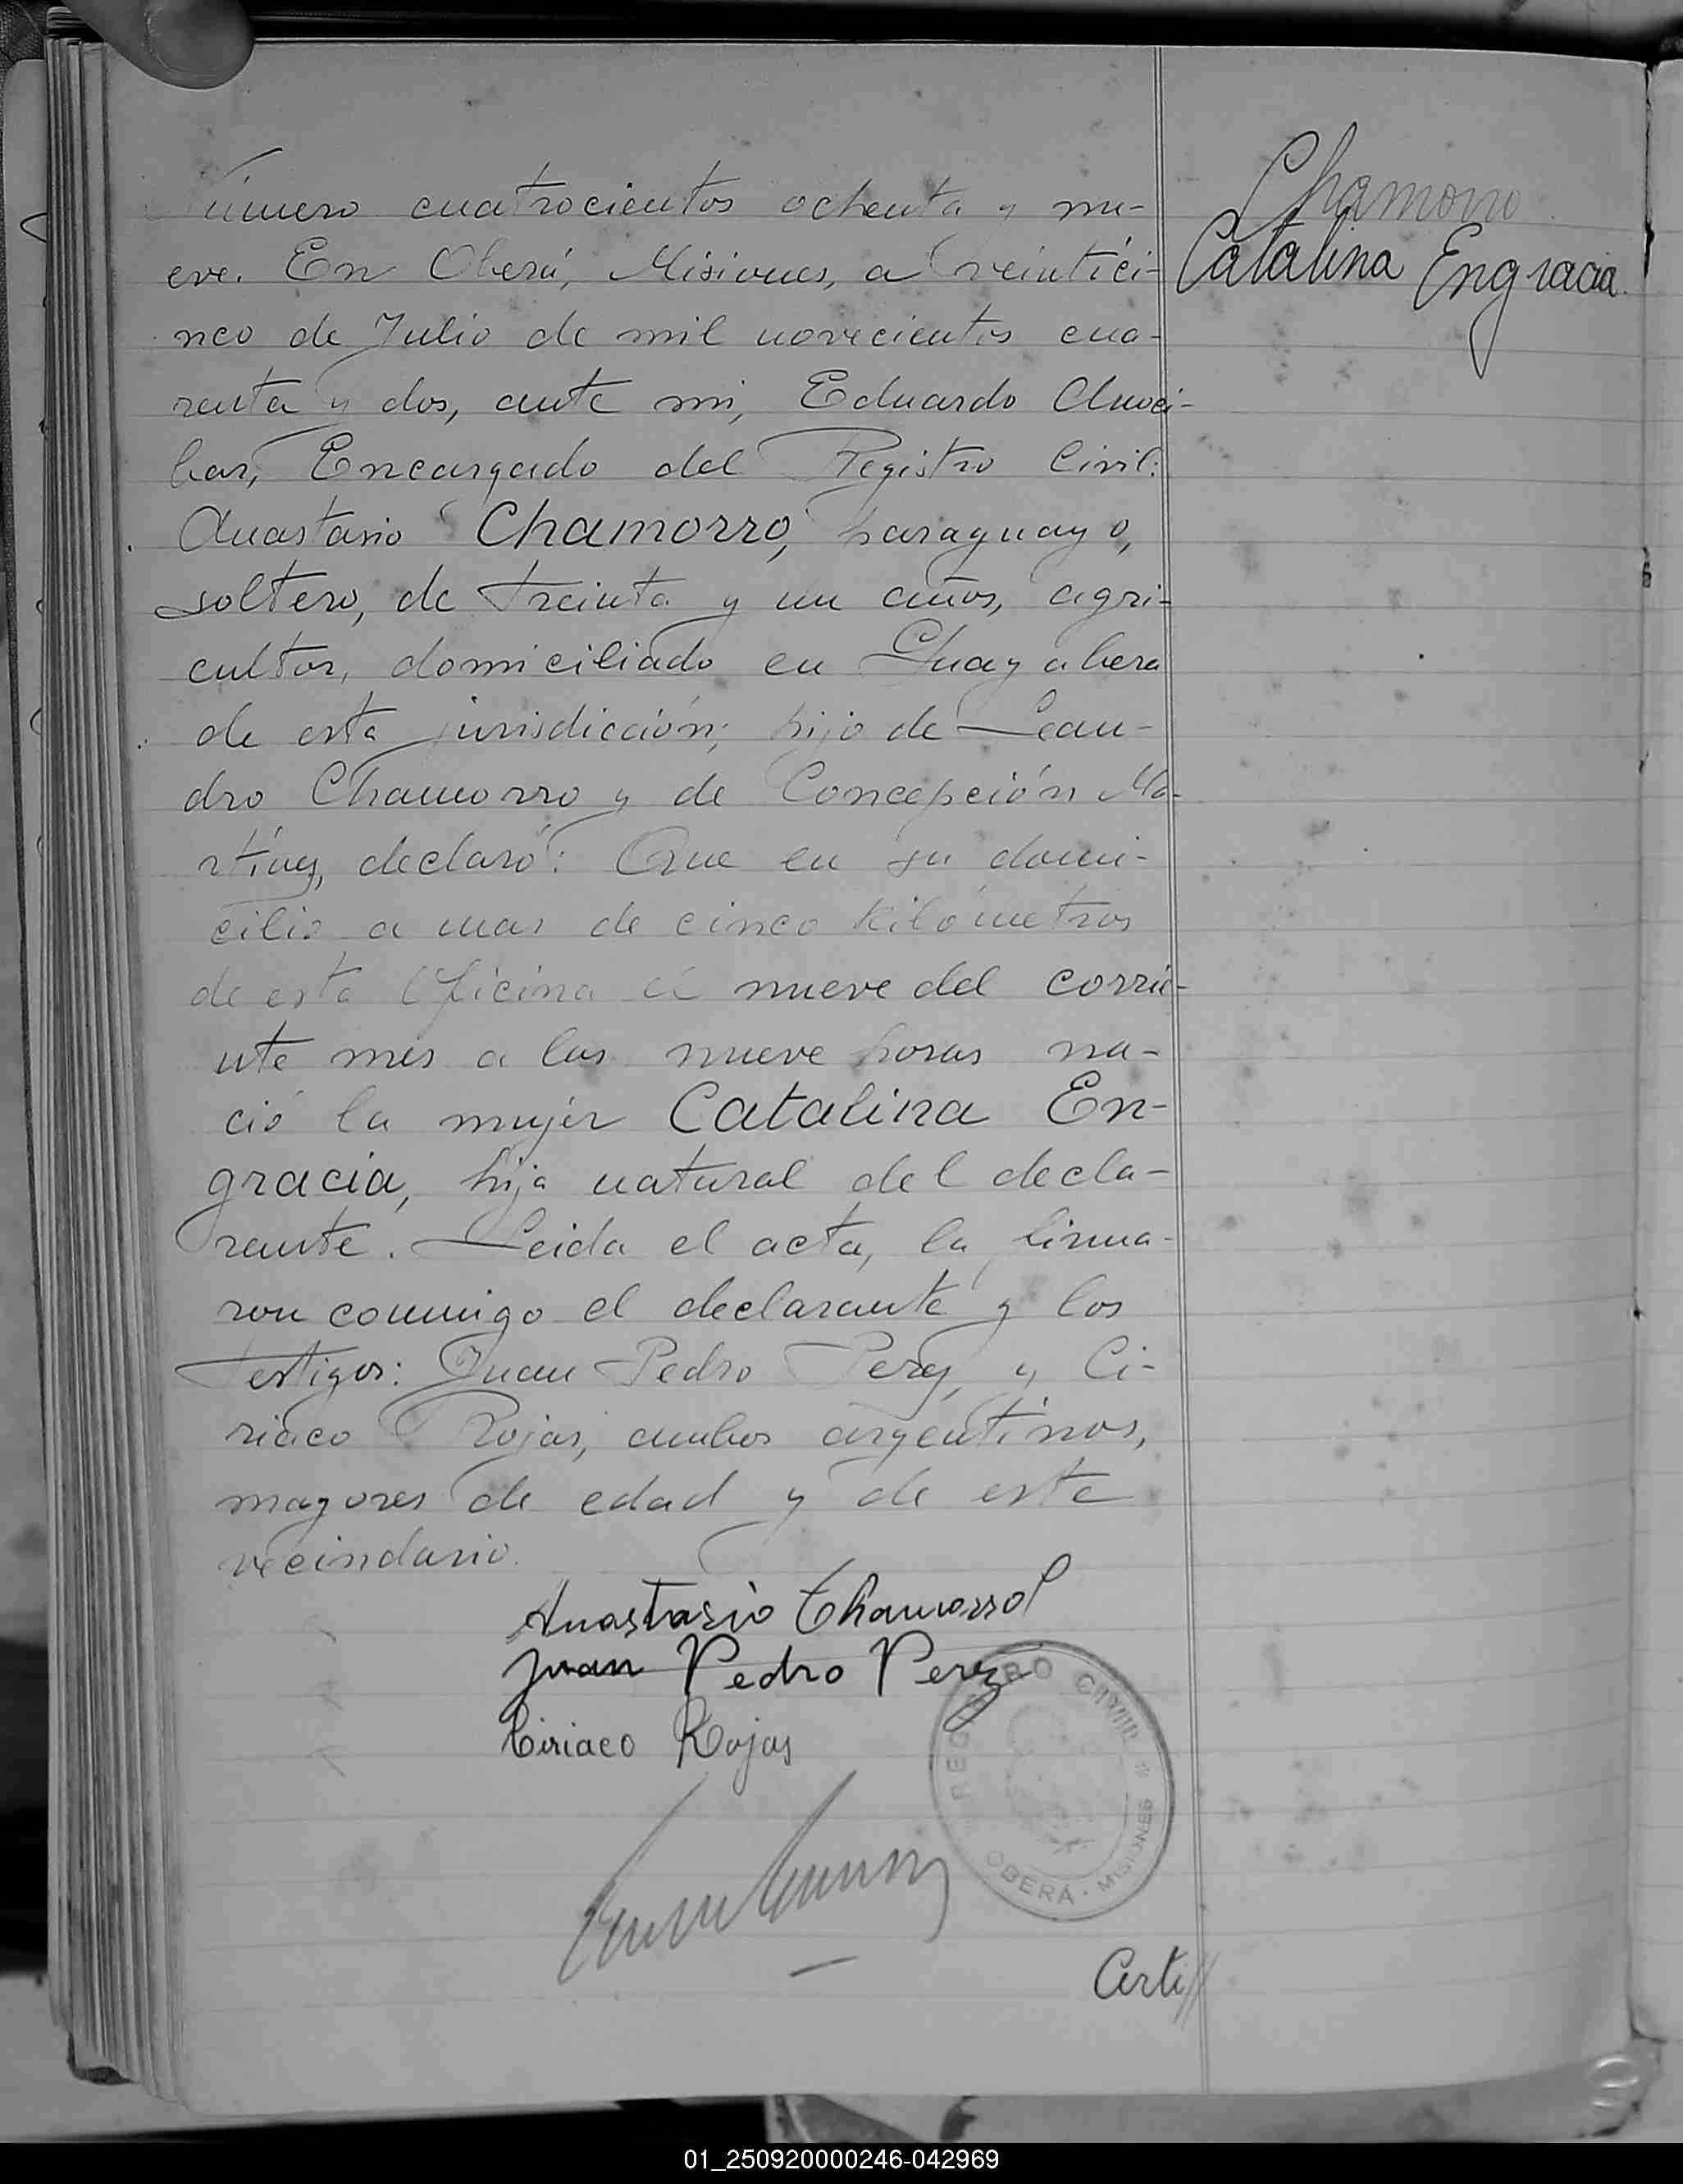 Número cuatrocientos ochenta y nu-
eve. En Oberá, Misiones, a veintici-
nco de Julio de mil novecientos cua-
renta y dos, ante mi, Eduardo Amoci-
bar, Encargado del Registro Civil:
Anastasio Chamorro, paraguayo,
soltero, de treinta y un años, agri-
cultor, domiciliado en Guayabera
de esta jurisdicción; hijo de Lean-
dro Chamorro y de Concepción Ma-
rtinez, declaró: Que en su domi-
cilio a mas de cinco kilómetros
de esta Oficina el nueve del corrie-
nte mes a las nueve horas na-
ció la mujer Catalina En-
gracia, hija natural del decla-
rante. Leida el acta, la firma-
ron conmigo el declarante y los
testigos: Juan Pedro Perez, y Ci-
riaco Rojas, ambos argentinos,
mayores de edad y de este
vecindario.
Chamorro
Catalina Engracia.
Anastasio Chamorro
Juan Pedro Perez
Ciriaco Rojas
REGISTRO CIVIL
OBERÁ - MISIONES
01_250920000246-042969